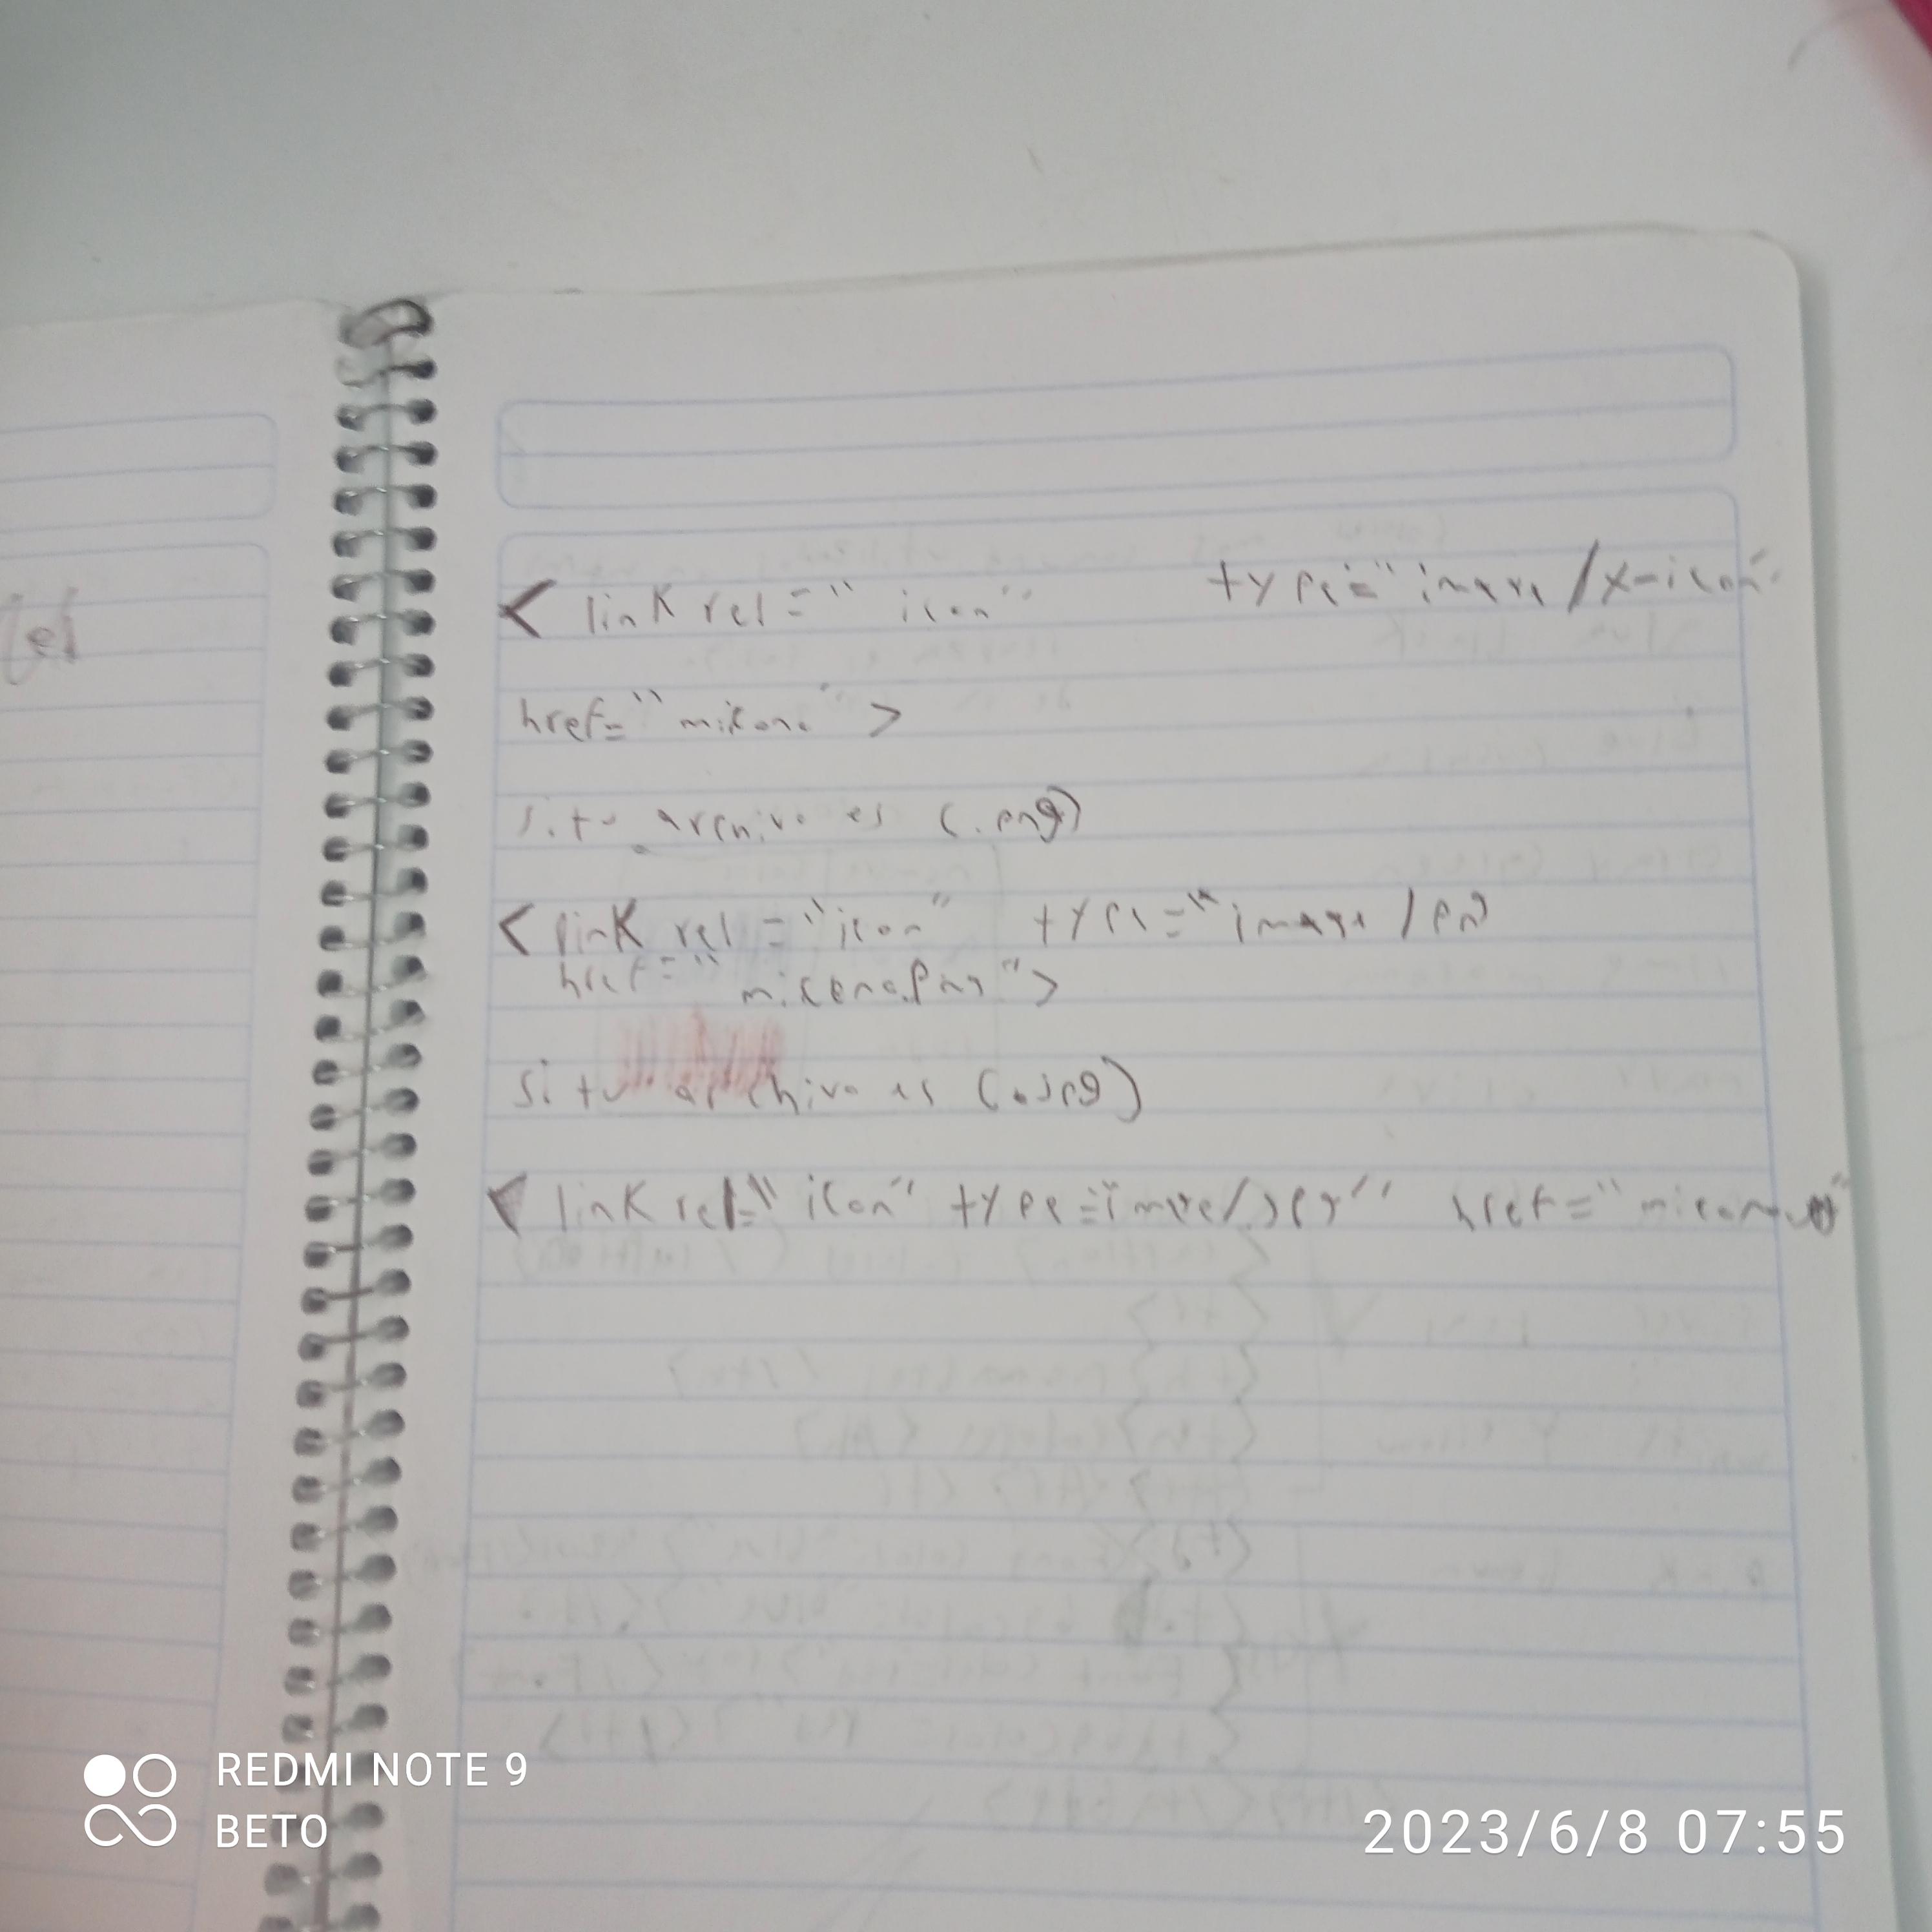 < link rel=" icon" type="image/x-icon"
href="micono" >
si tu archivo es (.png)
< link rel ="icon" type="image/png
href=" micono.png">
si tu archivo es (.jpg)
< link rel="icon" type="image/jpg" href="micono
REDMI NOTE 9
BETO
2023/6/8 07:55